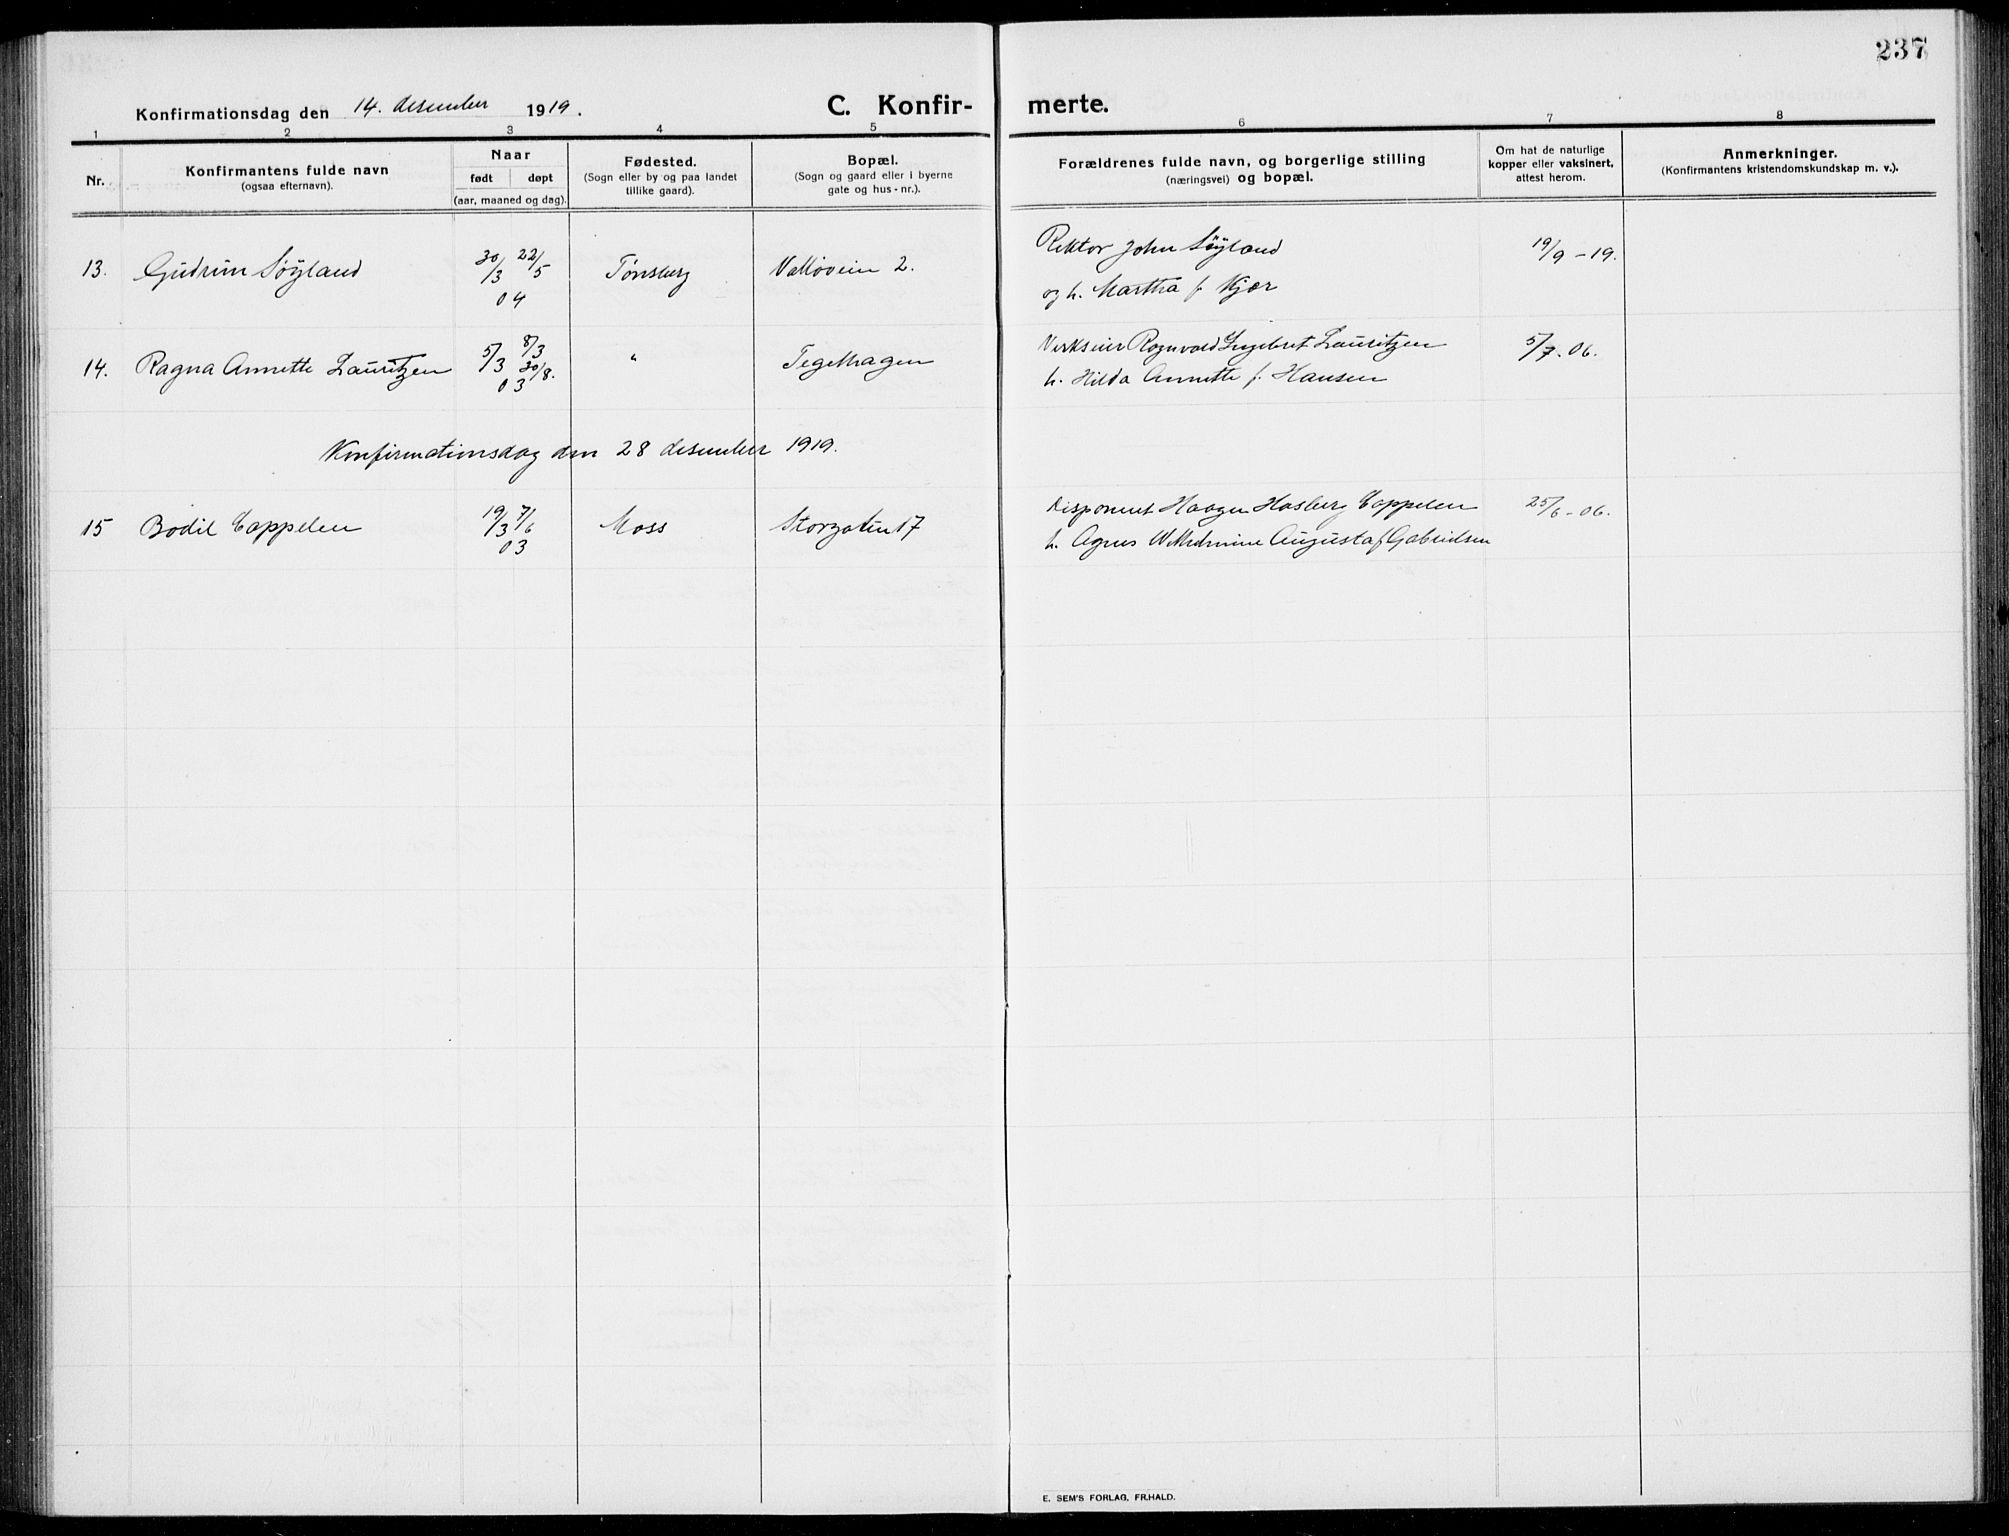 237
Konfirmationsdag den 14. desember 1919.
C. Konfir- merte.
1 2 3 4 5 6 7 8
Nr.
Konfirmantens fulde navn
(ogsaa efternavn).
Naar
født døpt
(aar, maaned og dag).
Fødested.
(Sogn eller by og paa landet
tillike gaard).
Bopæl.
(Sogn og gaard eller i byerne
gate og hus-nr.).
Forældrenes fulde navn, og borgerlige stilling
(næringsvei) og bopæl.
Om hat de naturlige
kopper eller vaksinert,
attest herom.
Anmerkninger.
(Konfirmantens kristendomskundskap m. v.).
13. Gudrun Søyland 30/3 22/5 04 Tønsberg Valløveien 2. Rektor John Søyland 19/9 - 19.
og h. Martha f. Kjær
14. Ragna Annette Lauritzen 5/3 8/3 30/8. 03 " Teglhagen Verkseier Rognvald Ingebret Lauritzen 5/7. 06.
h. Hilda Annette f. Hansen
Konfirmationsdag den 28 desember 1919.
15 Bodil Cappelen 19/3 7/6 03 Moss Storgaten 17 Disponent Haagen Hasberg Cappelen 25/6 - 06.
h. Agnes Wilhelmine Augusta f Gabrielsen
E. SEM'S FORLAG, FR.HALD.